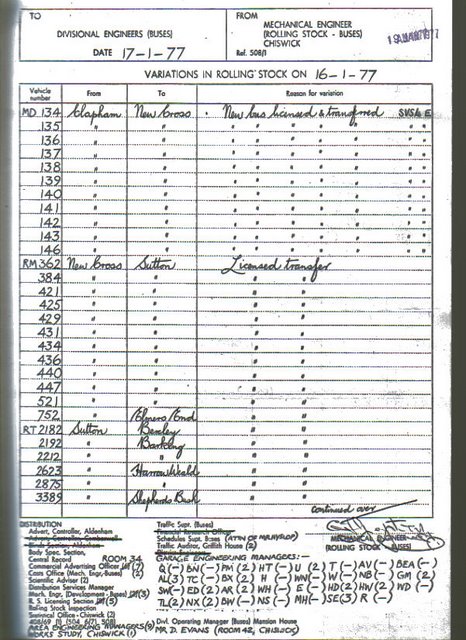 TO
DIVISIONAL ENGINEERS (BUSES)
DATE 17-1-77
FROM
MECHANICAL ENGINEER
(ROLLING STOCK - BUSES)
CHISWICK
Ref. 508/1
VARIATIONS IN ROLLING STOCK ON 16-1-77
Vehicle number From To Reason for variation
MD 134 Clapham New Cross New bus licensed & transferred
135 " " " " " " "
136 " " " " " " "
137 " " " " " " "
138 " " " " " " "
139 " " " " " " "
140 " " " " " " "
141 " " " " " " "
142 " " " " " " "
143 " " " " " " "
146 " " " " " " "
RM 362 New Cross Sutton Licensed transfer
384 " " " "
421 " " " "
425 " " " "
429 " " " "
431 " " " "
434 " " " "
436 " " " "
440 " " " "
447 " " " "
521 " " " "
752 " Elmers End " "
RT 2182 Sutton Bexley " "
2192 " Barking " "
2212 " " " "
2623 " Harrow Weald " "
2875 " " " "
3389 " Shepherds Bush " "
continued over
MECHANICAL ENGINEER
(ROLLING STOCK BUSES)
DISTRIBUTION
Advert. Controller, Aldenham
Advert. Controller Camberwell
Body Spec. Section,
Central Record ROOM 34
Commercial Advertising Officer (7)
Costs Office (Mech. Engr.-Buses) (2)
Scientific Adviser (2)
Distribution Services Manager
Mech. Engr. (Development-Buses) (3)
R. S. Licensing Section (5)
Rolling Stock Inspection
Statistical Office - Chiswick (2)
AREA ENGINEERING MANAGERS (9)
WORKS STUDY, CHISWICK (1)
Traffic Supt. (Buses)
Financial Research Officer
Schedules Supt. Buses (ATTN OF MR HYSLOP)
Traffic Auditor, Griffith House (2)
GARAGE ENGINEERING MANAGERS:-
Q(-) BN(-) PM(2) HT(-) U(2) T(-) AV(-) BEA(-)
AL(3) TC(-) BX(2) H(-) WN(-) W(-) NB(-) GM(2)
SW(-) ED(2) AR(2) WH(-) E(-) HD(2) HW(2) WD(-)
TL(2) NX(2) BW(-) NS(-) MH(-) SE(3) R(-)
Divl. Operating Manager (Buses) Mansion House
MR D. EVANS (ROOM 42, CHISWICK)